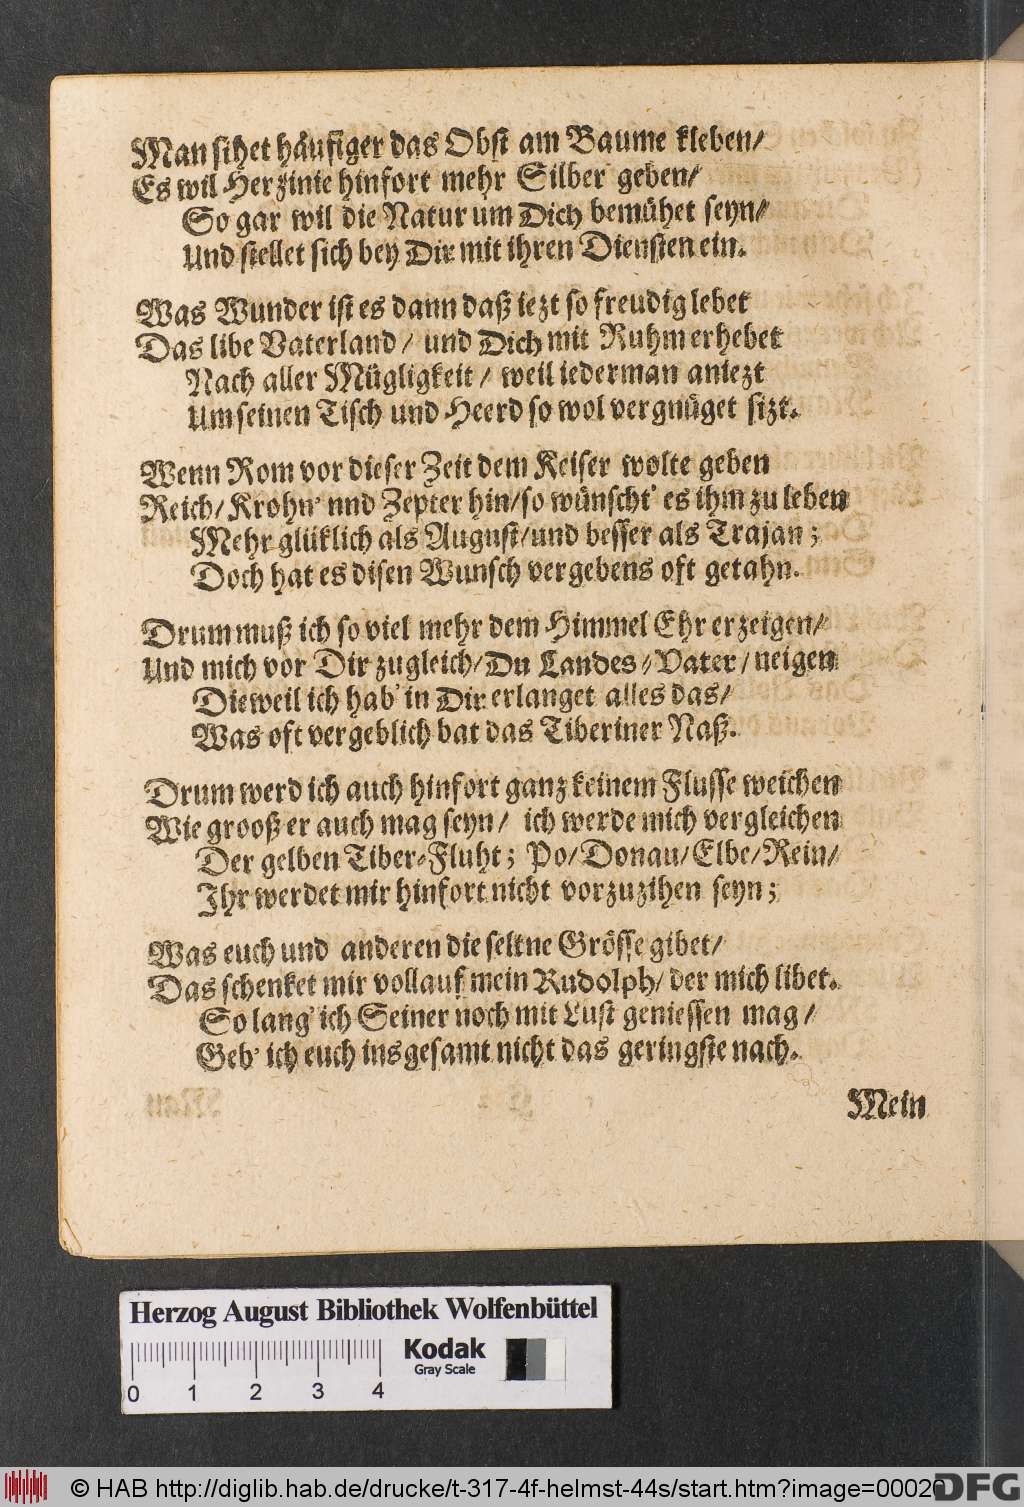 Man sihet häufiger das Obst am Baume kleben/
Es wil Herzinie hinfort mehr Silber geben/
So gar wil die Natur um Dich bemühet seyn/
Und stellet sich bey Dir mit ihren Diensten ein.
Was Wunder ist es dann daß iezt so freudig lebet
Das libe Vaterland/ und Dich mit Ruhm erhebet
Nach aller Mügligkeit/ weil iederman aniezt
Um seinen Tisch und Heerd so wol vergnüget sizt.
Wenn Rom vor dieser Zeit dem Keiser wolte geben
Reich/ Krohn' nnd Zepter hin/ so wünscht' es ihm zu leben
Mehr glüklich als August/ und besser als Trajan;
Doch hat es disen Wunsch vergebens oft getahn.
Drum muß ich so viel mehr dem Himmel Ehr erzeigen/
Und mich vor Dir zugleich/ Du Landes-Vater/ neigen
Dieweil ich hab' in Dir erlanget alles das/
Was oft vergeblich bat das Tiberiner Naß.
Drum werd ich auch hinfort ganz keinem Flusse weichen
Wie grooß er auch mag seyn/ ich werde mich vergleichen
Der gelben Tiber-Fluht; Po/ Donau/ Elbe/ Rein/
Ihr werdet mir hinfort nicht vorzuzihen seyn;
Was euch und anderen die seltne Grösse gibet/
Das schenket mir vollauf mein Rudolph/ der mich libet.
So lang' ich Seiner noch mit Lust geniessen mag/
Geb' ich euch insgesamt nicht das geringste nach.
Mein
Herzog August Bibliothek Wolfenbüttel
Kodak
Gray Scale
0 1 2 3 4
© HAB http://diglib.hab.de/drucke/t-317-4f-helmst-44s/start.htm?image=00020
DFG